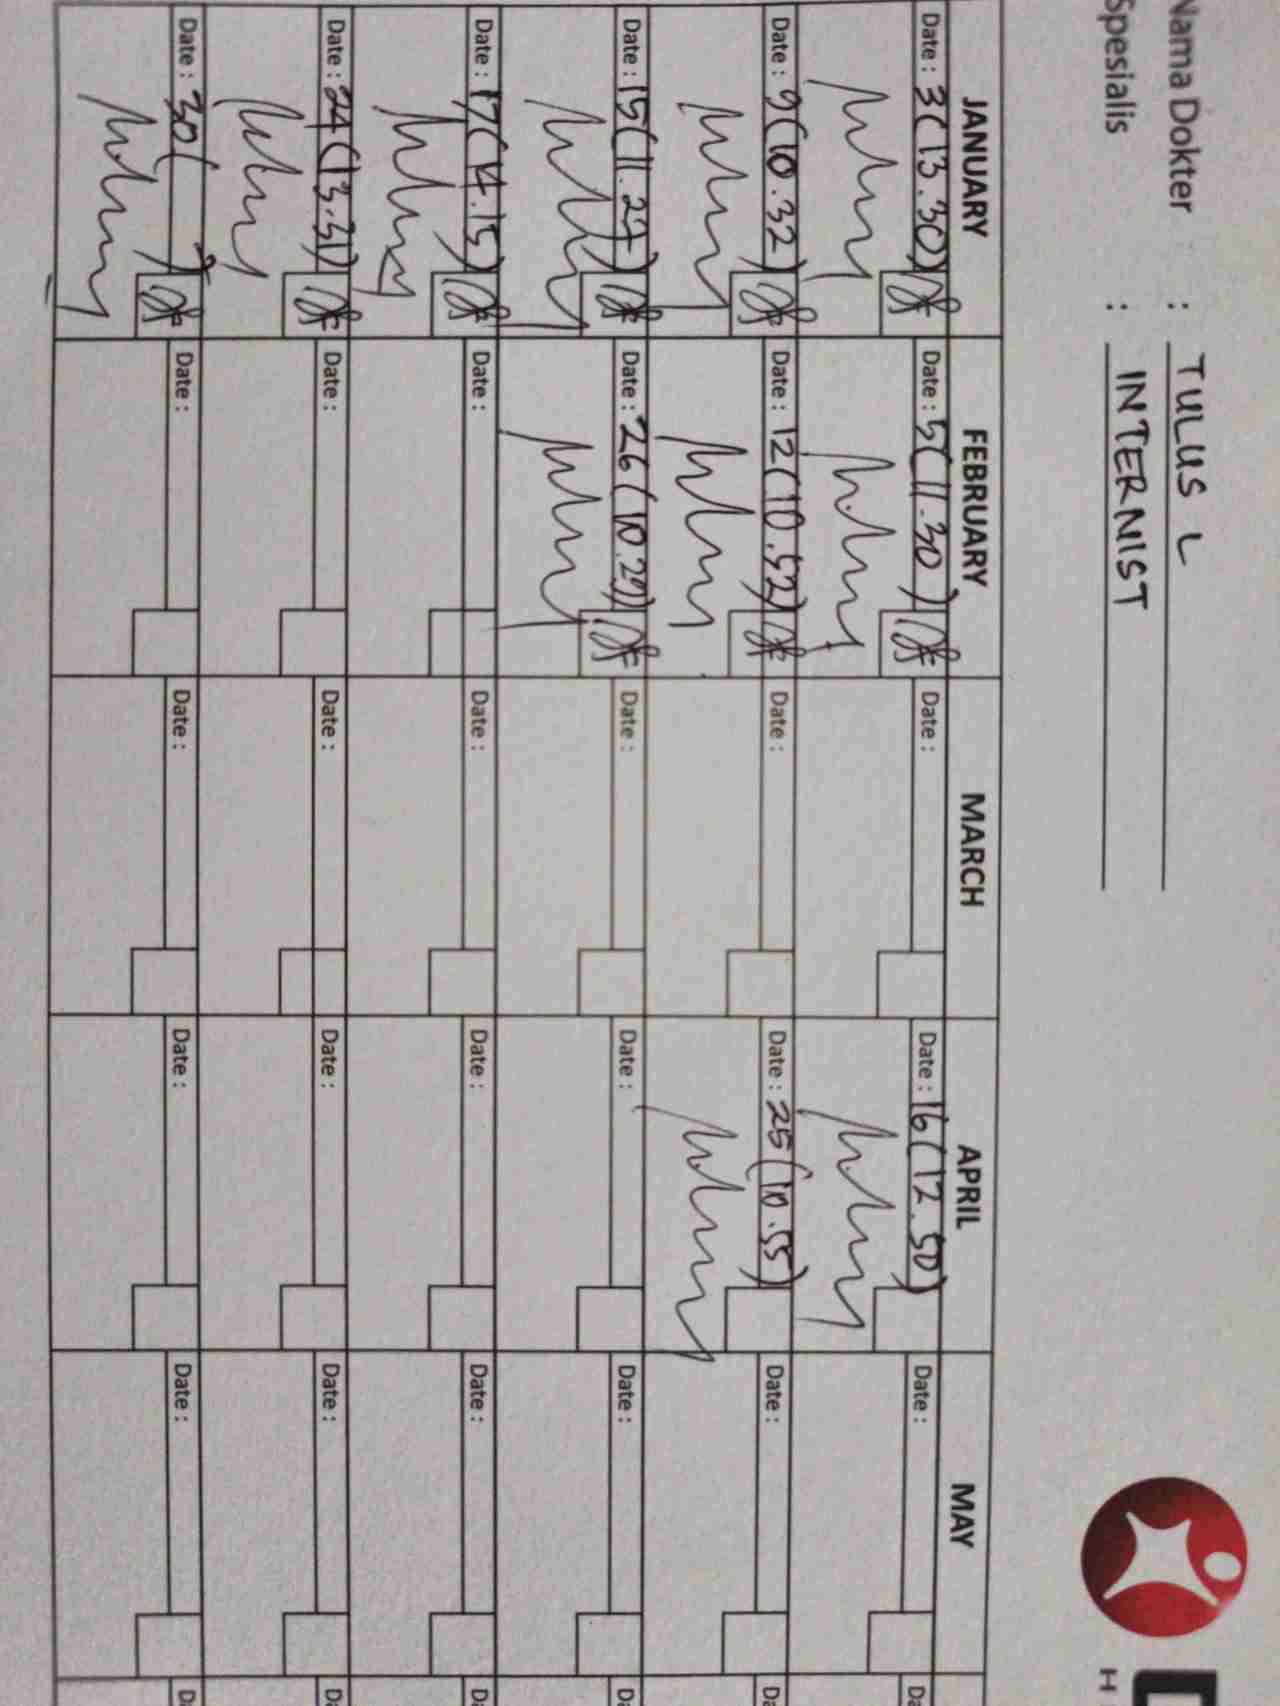 Nama Dokter : TULUS L
Spesialis : INTERNIST
JANUARY FEBRUARY MARCH APRIL MAY
Date : 3 (13.30) Date : 5 (11.30) Date : Date : 16 (12.50) Date : Da
Date : 9 (10.32) Date : 12 (10.52) Date : Date : 25 (10.55) Date : Da
Date : 15 (11.27) Date : 26 (10.29) Date : Date : Date : Da
Date : 17 (14.15) Date : Date : Date : Date : Da
Date : 24 (13.31) Date : Date : Date : Date : Da
Date : 30 ( ) Date : Date : Date : Date : Da